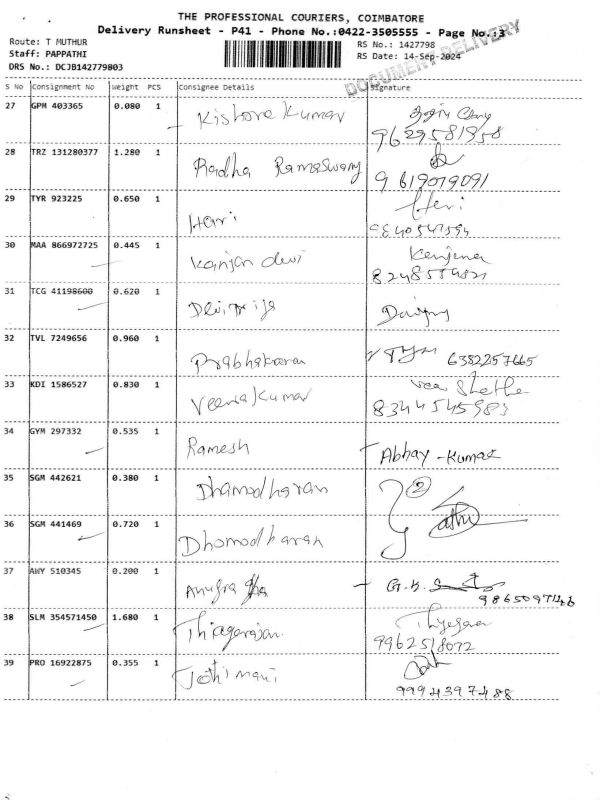 THE PROFESSIONAL COURIERS, COIMBATORE
Delivery Runsheet - P41 - Phone No.:0422-3505555 - Page No.:3
Route: T MUTHUR
Staff: PAPPATHI
DRS No.: DCJB142779803
RS No.: 1427798
RS Date: 14-Sep-2024
DOCUMENT DELIVERY
S No Consignment No Weight PCS Consignee Details Signature
27 GPM 403365 0.080 1 Kishore Kumar
9629581958
28 TRZ 131280377 1.280 1 Radha Ramaswamy
9619019091
29 TYR 923225 0.650 1 Hari Heri
30 MAA 866972725 0.445 1 Kanjan devi Kanjena
31 TCG 41198600 0.620 1
32 TVL 7249656 0.960 1 Prabhakaran 6382257665
33 KDI 1586527 0.830 1 Veera Kumar
8344545983
34 GYM 297332 0.535 1 Ramesh Abhay - Kumar
35 SGM 442621 0.380 1 Dhamodharan 2
36 SGM 441469 0.720 1 Dhomodharan
37 AWY 510345 0.200 1 G.K.S
38 SLM 354571450 1.680 1 Thiagarajan
9962518072
39 PRO 16922875 0.355 1 Jothimani
9994397488